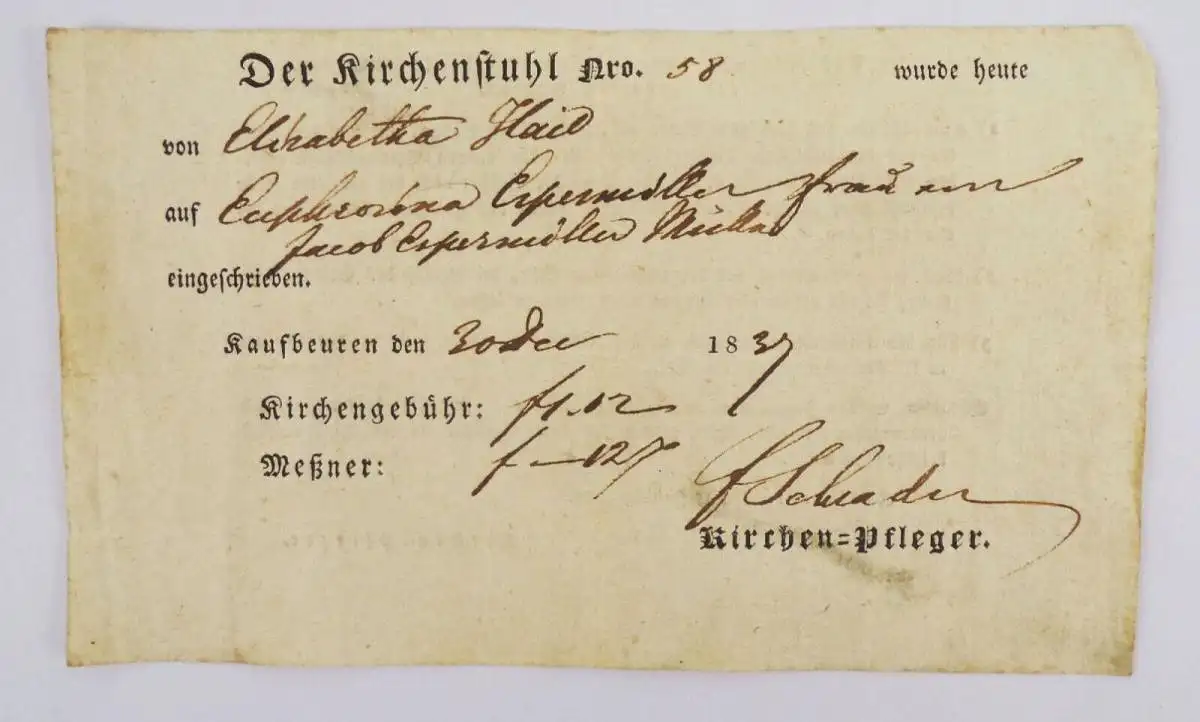 Der Kirchenstuhl Nro. 58 wurde heute
von Elisabetha Haid
auf Euphrosina Espermüller Frau
Jacob Espermüller
eingeschrieben.
Kaufbeuren den 30 Dec 1837
Kirchengebühr: f 1.12
Meßner: f — 12
Schrader
Kirchen=Pfleger.